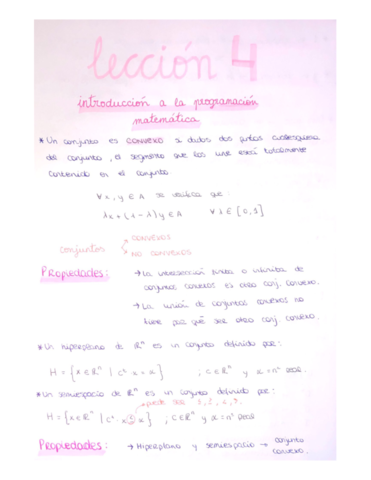 lección 4
introducción a la programación
matemática
* Un conjunto es CONVEXO si dados dos puntos cualesquiera
del conjunto, el segmento que los une está totalmente
contenido en el conjunto.
∀ x, y ∈ A se verifica que
λx + (1 - λ) y ∈ A ∀ λ ∈ [0,1]
conjuntos
CONVEXOS
NO CONVEXOS
Propiedades:
→ La intersección finita o infinita de
conjuntos convexos es otro conj. convexo.
→ La unión de conjuntos convexos no
tiene por qué ser otro conj. convexo.
* Un hiperplano de ℝⁿ es un conjunto definido por:
H = {x ∈ ℝⁿ | cᵗ x = α} ; c ∈ ℝⁿ y α = nº real.
* Un semiespacio de ℝⁿ es un conjunto definido por:
puede ser
H = {x ∈ ℝⁿ | cᵗ · x α} ; c ∈ ℝⁿ y α = nº real
Propiedades:
→ Hiperplano y semiespacio → conjunto
convexo.